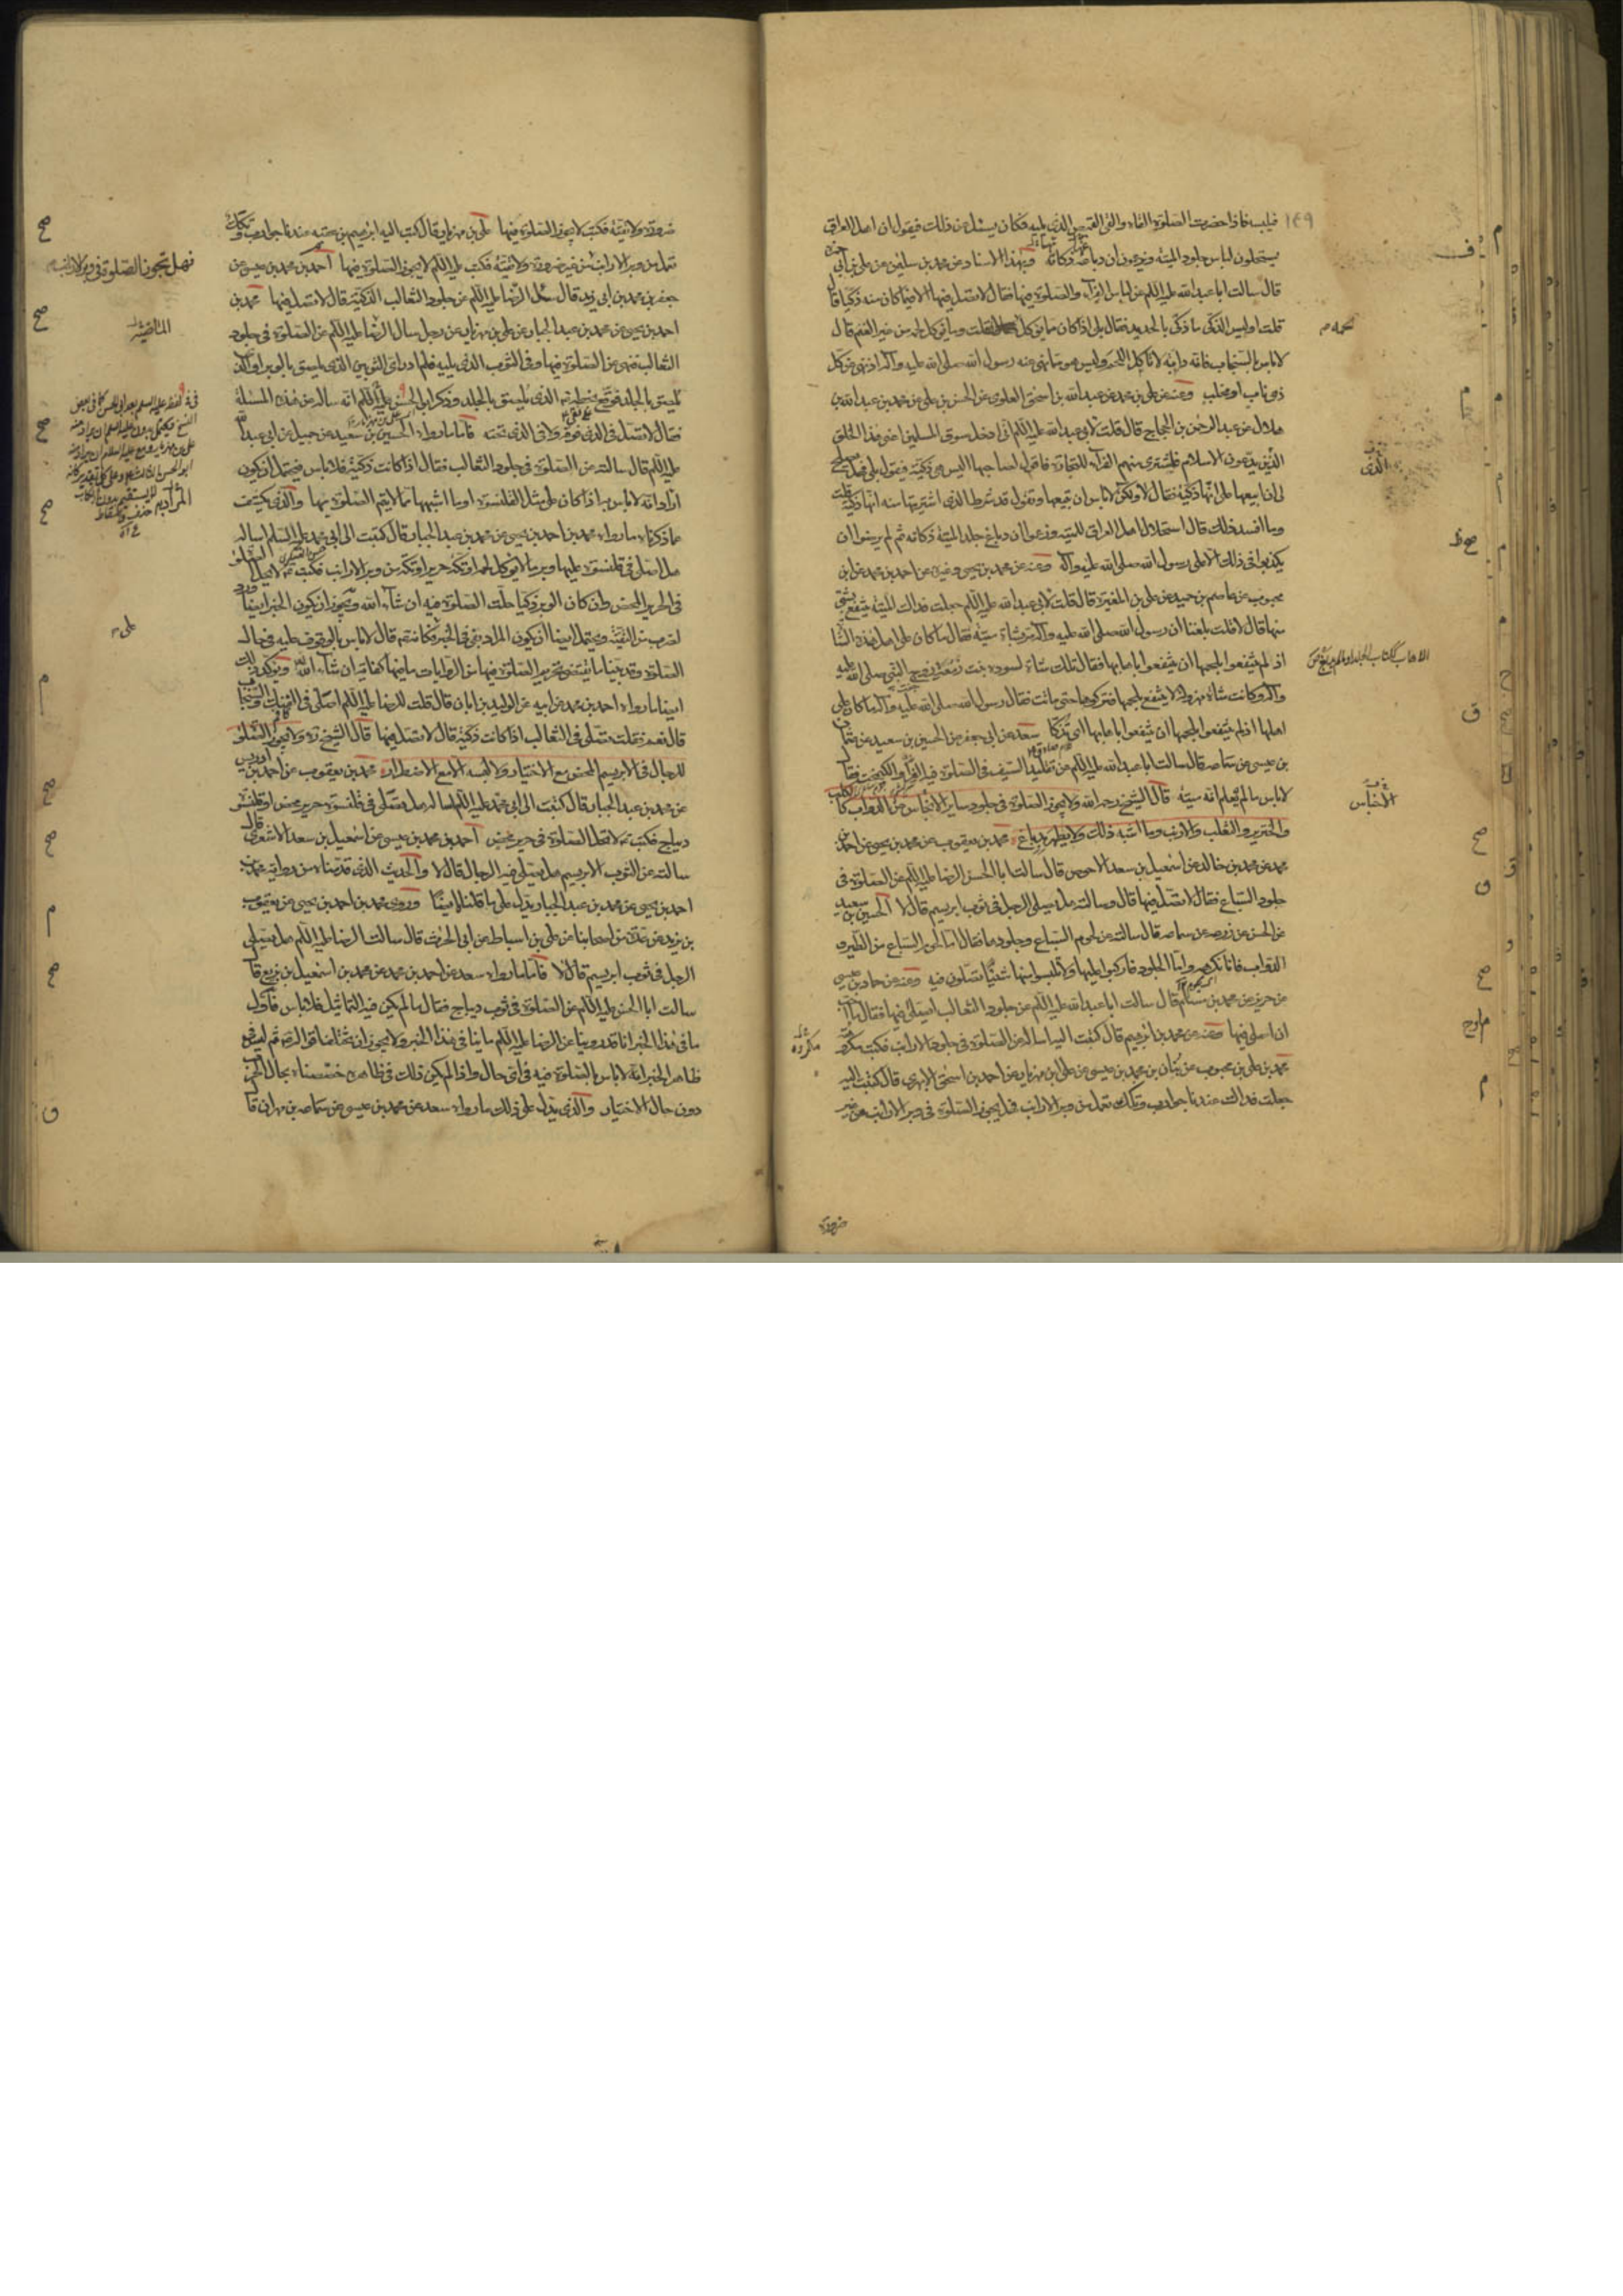 ١٤٩
فيلبسه فاذا حضرت الصلوة القاه والقى القميص الذى يليه فكان يسئل عن ذلك فيقول ان اهل العراق
يستحلون لباس جلود الميتة ويزعمون ان دباغه ذكاته وبهذا الاسناد عن محمد بن سليمن عن على بن ابى حمزة
قال سالت ابا عبد الله عليه السلام عن لباس الفراء والصلوة فيها فقال لا تصل فيها الا فيما كان منه ذكيا قال
قلت اوليس الذكى ما ذكى بالحديد فقال بلى اذا كان مما يؤكل لحمه قلت وما يؤكل لحمه من غير الغنم قال
لا باس بالسنجاب فانه دابة لا تاكل اللحم وليس هو مما نهى عنه رسول الله صلى الله عليه وآله اذ نهى عن كل
ذى ناب او مخلب وعنه عن على بن محمد عن عبد الله بن اسحق العلوى عن الحسن بن على عن محمد بن عبد الله بن
هلال عن عبد الرحمن بن الحجاج قال قلت لابى عبد الله عليه السلام انى ادخل سوق المسلمين اعنى هذا الخلق
الذين يدعون الاسلام فاشترى منهم الفراء للتجارة فاقول لصاحبها اليس هى ذكية فيقول بلى فهل يصلح
لى ان ابيعها على انها ذكية فقال لا ولكن لا باس ان تبيعها وتقول قد شرط الذى اشتريتها منه انها ذكية قلت
وما افسد ذلك قال استحلال اهل العراق للميتة وزعموا ان دباغ جلد الميتة ذكاته ثم لم يرضوا ان
يكذبوا فى ذلك الا على رسول الله صلى الله عليه وآله وعنه عن محمد بن يحيى وغيره عن احمد بن محمد عن ابن
محبوب عن عاصم بن حميد عن على بن المغيرة قال قلت لابى عبد الله عليه السلام جعلت فداك الميتة ينتفع بشئ
منها قال لا قلت بلغنا ان رسول الله صلى الله عليه وآله مر بشاة ميتة فقال ما كان على اهل هذه الشاة
اذ لم ينتفعوا بلحمها ان ينتفعوا باهابها فقال تلك شاة لسودة بنت زمعة زوج النبى صلى الله عليه
وآله وكانت شاة مهزولة لا ينتفع بلحمها فتركوها حتى ماتت فقال رسول الله صلى الله عليه وآله ما كان على
اهلها اذ لم ينتفعوا بلحمها ان ينتفعوا باهابها اى تذكى سعد عن ابى جعفر عن الحسين بن سعيد عن عثمان
بن عيسى عن سماعة قال سالت ابا عبد الله عليه السلام عن تقليد السيف فى الصلوة فيه الفراء والكيمخت فقال
لا باس ما لم يعلم انه ميتة قال الشيخ رحمه الله ولا يجوز الصلوة فى جلود ساير الانجاس من الدواب كالكلب
والخنزير والثعلب والارنب وما اشبه ذلك ولا يطهر بدباغ محمد بن يعقوب عن محمد بن يحيى عن احمد بن
محمد عن محمد بن خالد عن اسمعيل بن سعد الاحوص قال سالت ابا الحسن الرضا عليه السلام عن الصلوة فى
جلود السباع فقال لا تصل فيها قال وسالته هل يصلى الرجل فى ثوب ابريسم قال لا الحسين بن سعيد
عن الحسن عن زرعه عن سماعه قال سالته عن لحوم السباع وجلودها فقال اما لحوم السباع من الطير و
الدواب فانا نكرهه واما الجلود فاركبوا عليها ولا تلبسوا منها شيئا تصلون فيه وعنه عن حماد بن عيسى
عن حريز عن محمد بن مسلم قال سالت ابا عبد الله عليه السلام عن جلود الثعالب ايصلى فيها فقال ما احب
ان اصلى فيها وعنه عن محمد بن ابرهيم قال كتبت اليه اساله عن الصلوة فى جلود الارانب فكتب مكروه
محمد بن على بن محبوب عن بنان بن محمد بن عيسى عن على بن مهزيار عن احمد بن اسحق الابهرى قال كتبت اليه
جعلت فداك عندنا جوارب وتكك تعمل من وبر الارانب فهل يجوز الصلوة فى وبر الارانب من غير
ضرورة
ضرورة ولا تقية فكتب لا يجوز الصلوة فيها على بن مهزيار قال كتب اليه ابرهيم بن عقبه عندنا جوارب وتكك
تعمل من وبر الارانب من غير ضرورة ولا تقية فكتب عليه السلام لا يجوز الصلوة فيها احمد بن محمد بن عيسى عن
جعفر بن محمد بن ابى زيد قال سئل الرضا عليه السلام عن جلود الثعالب الذكية قال لا تصل فيها محمد بن
احمد بن يحيى عن محمد بن عبد الجبار عن على بن مهزيار عن رجل سال الرضا عليه السلام عن الصلوة فى جلود
الثعالب فنهى عن الصلوة فيها وفى الثوب الذى يليه فلم ادر اى الثوبين الذى يلصق بالوبر او الذى
يلصق بالجلد فوقع بخطه الذى يلصق بالجلد وذكر ابو الحسن عليه السلام انه ساله عن هذه المسئلة
فقال لا تصل فى الذى فوقه ولا فى الذى تحته فاما ما رواه الحسين بن سعيد عن جميل عن ابى عبد الله
عليه السلام قال سالته عن الصلوة فى جلود الثعالب فقال اذا كانت ذكية فلا باس فيحتمل ان يكون
اراد انه لا باس به اذا كان على مثل القلنسوة او ما اشبهها مما لا يتم الصلوة بها والذى يكشف
عما ذكرناه ما رواه محمد بن احمد بن يحيى عن محمد بن عبد الجبار قال كتبت الى ابى محمد عليه السلام اساله
هل اصلى فى قلنسوة عليها وبر ما لا يؤكل لحمه او تكة حرير او تكة من وبر الارانب فكتب لا تحل الصلوة
فى الحرير المحض وان كان الوبر ذكيا حلت الصلوة فيه ان شاء الله ويجوز ان يكون الخبر ايضا ورد
لضرب من التقية ويحتمل ايضا ان يكون المراد بفى فى الخبر على فكانه قال لا باس بالوقوف عليه فى حال
الصلوة وقد بينا ما يقتضى تحريم الصلوة فيها من الروايات ما فيها كفاية ان شاء الله ويؤكد ذلك
ايضا ما رواه احمد بن محمد عن ابيه عن الوليد بن ابان قال قلت للرضا عليه السلام اصلى فى الفنك والسنجاب
قال نعم فقلت يصلى فى الثعالب اذا كانت ذكية قال لا تصل فيها قال الشيخ ره ولا يجوز الصلوة
للرجال فى الابريسم المحض مع الاختيار ولا لبسه الا مع الاضطرار محمد بن يعقوب عن احمد بن ادريس
عن محمد بن عبد الجبار قال كتبت الى ابى محمد عليه السلام اساله هل يصلى فى قلنسوة حرير محض او قلنسوة
ديباج فكتب لا تحل الصلوة فى حرير محض احمد بن محمد بن عيسى عن اسمعيل بن سعد الاشعرى قال
سالته عن الثوب الابريسم هل يصلى فيه الرجال قال لا والحديث الذى قدمناه من رواية محمد بن
احمد بن يحيى عن محمد بن عبد الجبار يدل على ما قلناه ايضا وروى محمد بن احمد بن يحيى عن يعقوب
بن يزيد عن عدة من اصحابنا عن على بن اسباط عن ابى الحرث قال سالت الرضا عليه السلام هل يصلى
الرجل فى ثوب ابريسم قال لا فاما ما رواه سعد عن احمد بن محمد عن محمد بن اسمعيل بن بزيع قال
سالت ابا الحسن عليه السلام عن الصلوة فى ثوب ديباج فقال ما لم يكن فيه التماثيل فلا باس فاول
ما فى هذا الخبر انا قد روينا عن الرضا عليه السلام ما ينافى هذا الخبر ولا يجوز ان تتناقض اقواله ثم ليس فى
ظاهر الخبر انه لا باس بالصلوة فيه فى اى حال واذا لم يكن ذلك فى ظاهره خصصناه بحال الحرب
دون حال الاختيار والذى يدل على ذلك ما رواه سعد عن محمد بن عيسى عن سماعه بن مهران قال
فهل تجوز الصلوة فى وبر الارانب
مكروه